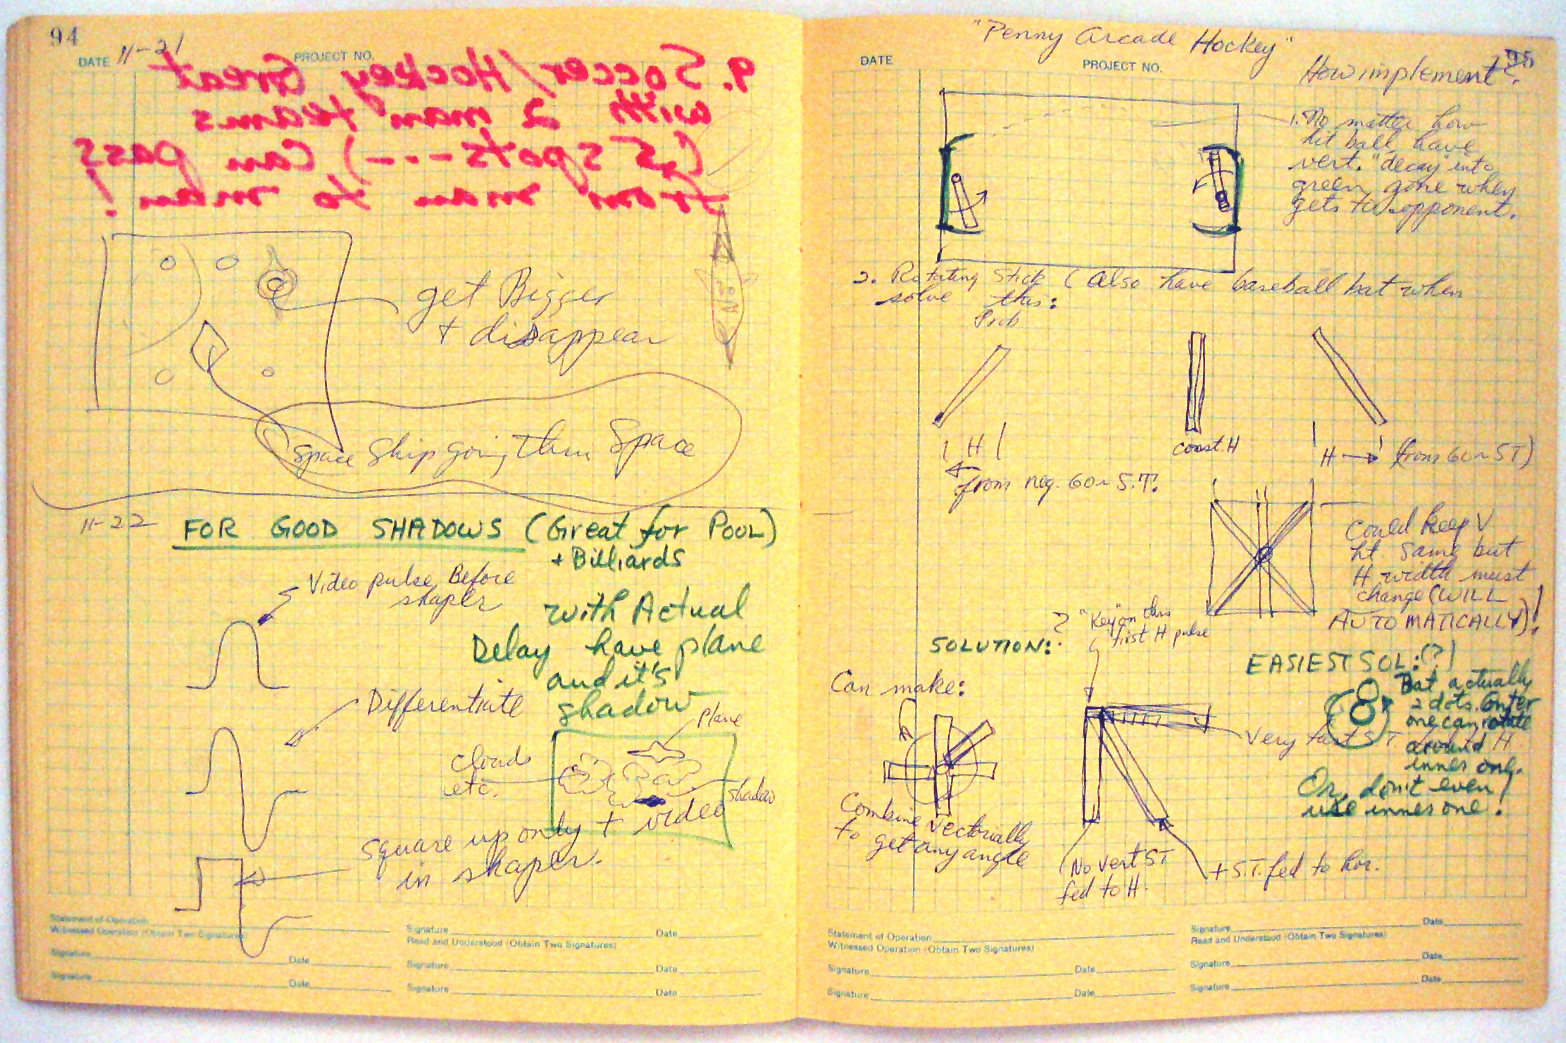 94
DATE 11-21
PROJECT NO.
9. Soccer/Hockey Great
with 2 man teams
(5 spots---) Can pass
from man to man!
get Bigger
+ disappear
Space Ship going thru Space
11-22
FOR GOOD SHADOWS (Great for POOL)
+ Billiards
Video pulse Before
shaper
with Actual
Delay have plane
and it's
shadow
Differentiate
plane
clouds
etc.
shadow
Square up only + video
in shaper.
Statement of Operation
Witnessed Operation (Obtain Two Signatures)
Signature
Date
Read and Understood (Obtain Two Signatures)
Signature
Date
Signature
Date
Signature
Date
Signature
Date
"Penny Arcade Hockey"
95
DATE
PROJECT NO.
How implement?
1. No matter how
hit ball, have
vert. "decay" into
green, gone when
gets to opponent.
2. Rotating Stick (Also have baseball bat when
solve this:
Prob
H
from neg. 60~ S.T.
const H
H → (from 60~ ST)
Could keep V
ht. same but
H width must
change (WILL
AUTOMATICALLY)!
SOLUTION:
? "Key" on this
first H pulse
EASIEST SOL:(?)
Bat actually
2 dots. Outer
one can rotate
around
inner one.
Or, don't even
use inner one!
Can make:
Very fast ST
H
Combine vectorially
to get any angle
No vert ST
fed to H.
+ S.T. fed to hor.
Statement of Operation
Witnessed Operation (Obtain Two Signatures)
Signature
Date
Read and Understood (Obtain Two Signatures)
Signature
Date
Signature
Date
Signature
Date
Signature
Date